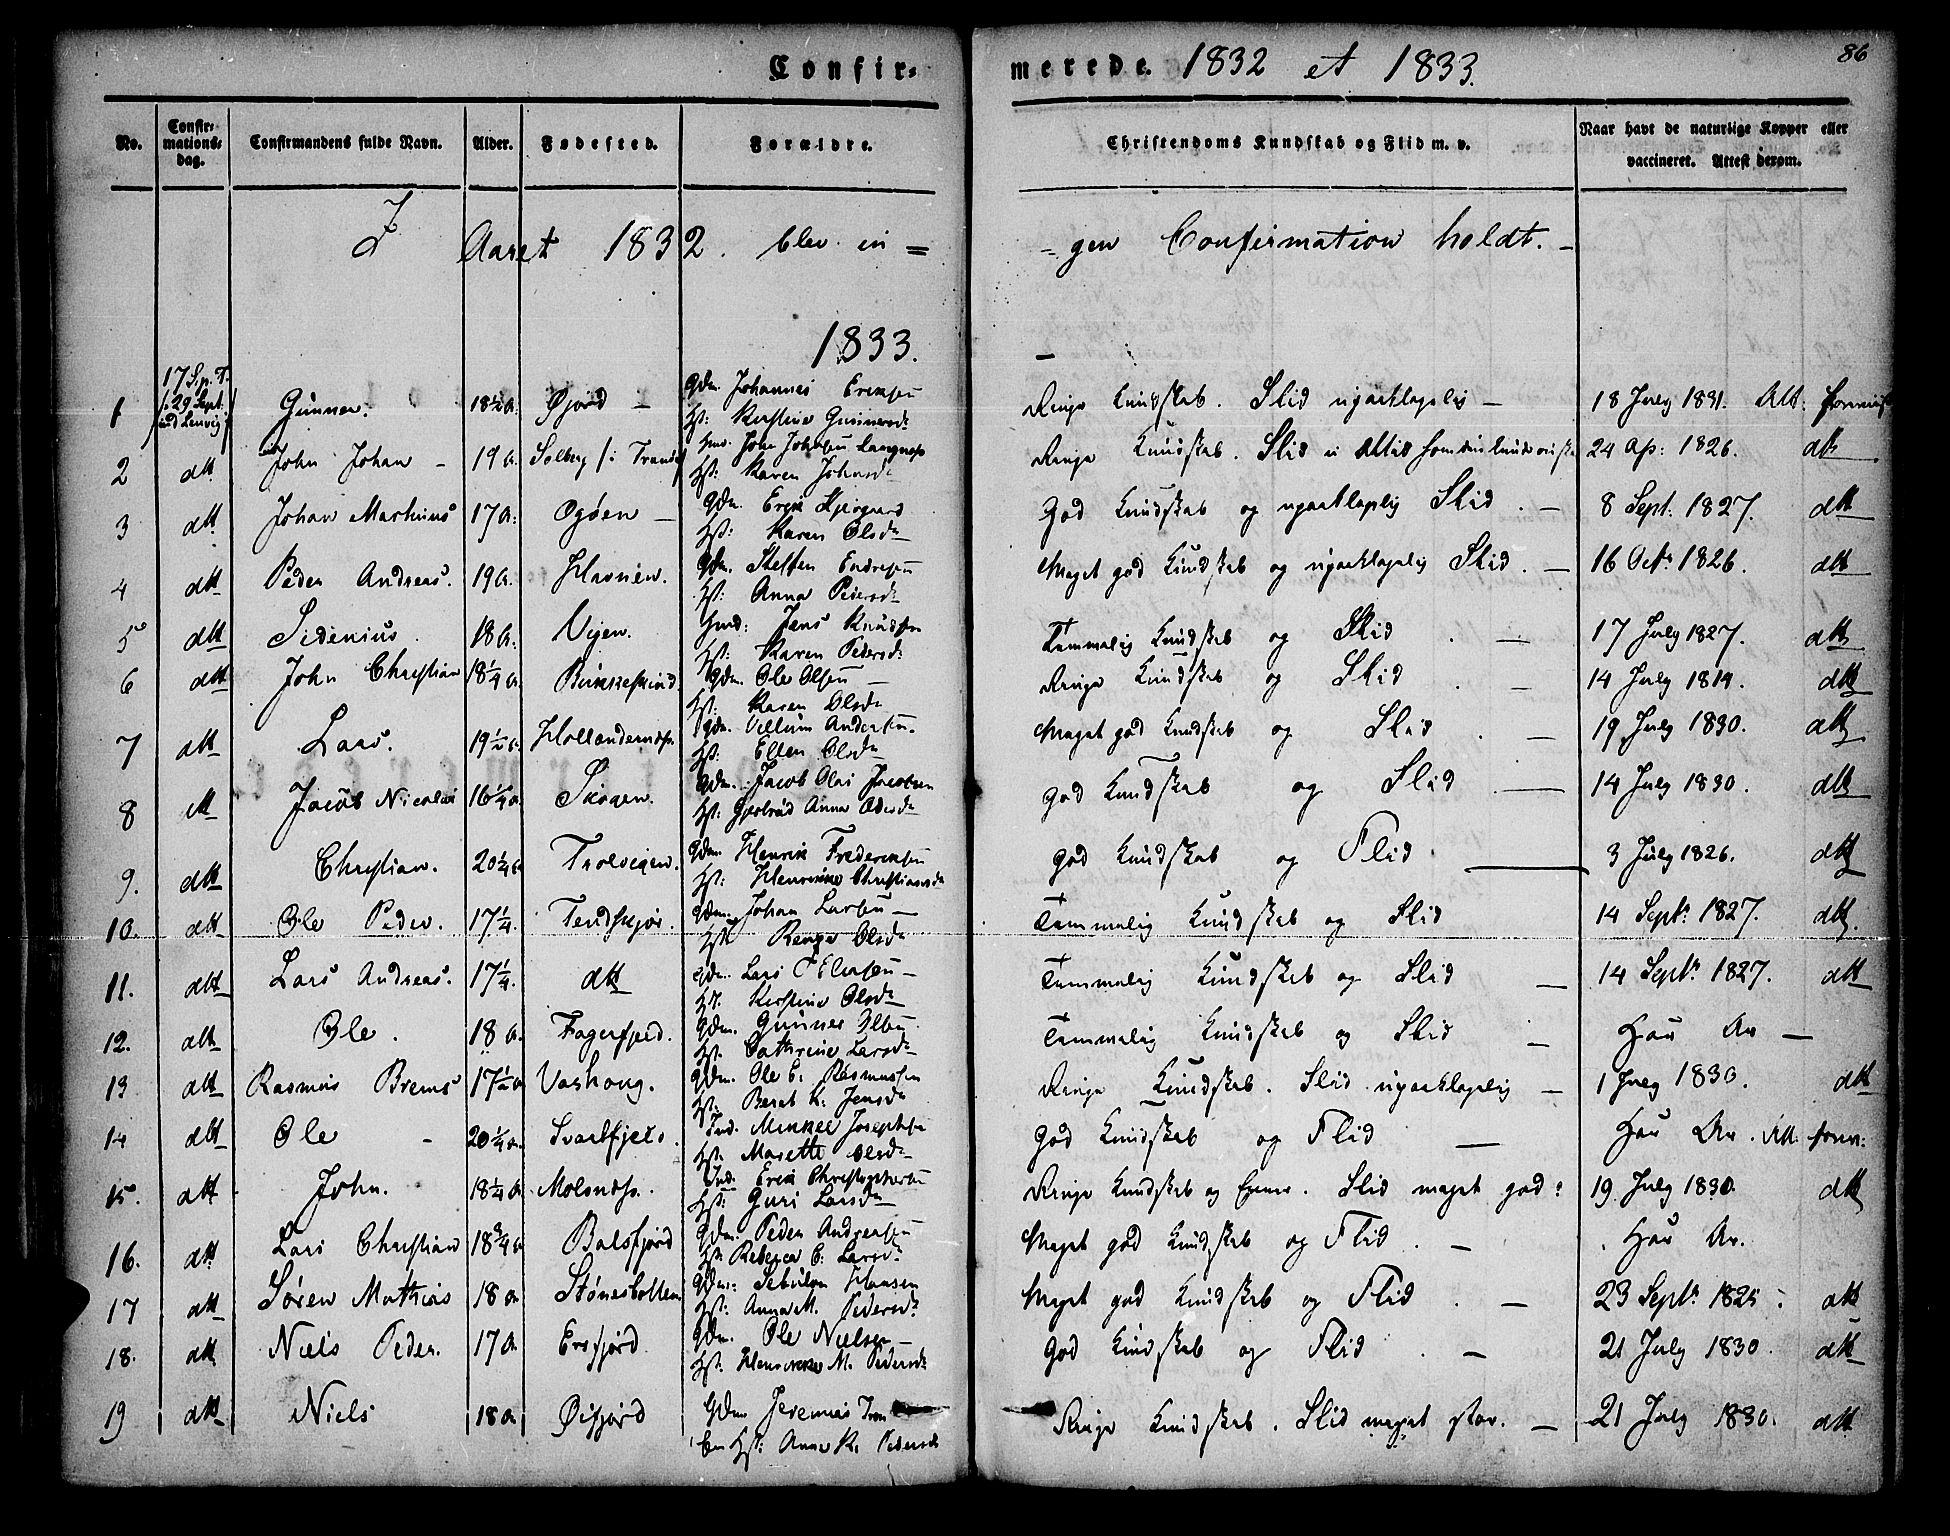 86
Confir-
merede. 1832 et 1833.
No.
Confir-
mations-
dag.
Confirmandens fulde Navn.
Alder.
Fødested.
Forældre.
Christendoms Kundskab og Flid m. v.
Naar havt de naturlige Kopper eller
vaccineret. Attest derom.
I Aaret 1832. blev in =
= gen Confirmation holdt. —
1833.
17 S. p. T.
29 Sept.
1 Gunner. 18½ a. Øjord — Gdm. Johannes Erichsen
Hst: Kirstine Gunnersdr
Ringe Kundskab. Flid upaaklagelig — 18 July 1831. Att:
2 dtt John Johan — 19 a. Solberg i Tranøe John Johnsen
Hst: Karen Johnsdr
Ringe Kundskab. Flid ei altid 24 Ap: 1826. dtt
3 dtt Johan Martinus 17 a. Øgøen — Gdm. Erik
Hst: Karen Olsdr
God Kundskab og upaaklagelig Flid. — 8 Sept: 1827. dtt
4 dtt Peder Andreas. 19 a. Havnen. Gdm. Steffen Endresen
Hst: Anna Pedersdr
Meget god Kundskab og upaaklagelig Flid. — 16 Octr 1826. dtt
5 dtt Sidenius. 18 a. Vejen. Hmd: Jens Knudsen
Hst: Karen Pedersdr
Temmelig Kundskab og Flid — 17 July 1827. dtt
6 dtt John Christian 18¼ a. Gdm. Ole Olsen —
Hst: Karen Olsdr
Ringe Kundskab og Flid. — 14 July 1819. dtt
7 dtt Lars. 19½ a. Hollændernes Gdm. Villum Andersen.
Hst: Ellen Olsdr
Meget god Kundskab og Flid. — 19 July 1830. dtt
8 dtt Jacob Nicolai 16¼ a. Skogen. Gdm. Jacob Olai Jacobsen
Hst: Gjertrud Anna Olsdr
God Kundskab og Flid — 14 July 1830. dtt
9. dtt Christian. 20¼ a. Trolvigen. Gdm. Henrik Frederiksen
Hst: Henrikke Christiansdr
God Kundskab og Flid — 3 July 1826. dtt
10. dtt Ole Peder. 17¼. Tendskjær. Gdm. Johan Larsen —
Hst. Olsdr
Temmelig Kundskab og Flid 14 Septr 1827. dtt.
11. dtt Lars Andreas. 17¼. dtt Gdm. Lars
Hst. Kirstine Olsdr
Temmelig Kundskab og Flid — 14 Septr 1827. dtt
12. dtt Ole. 18 a. Fagerfjeld. Gdm. Gunner Olsen
Hst. Cathrine Larsdr
Temmelig Kundskab og Flid — Har Ar —
13 dtt Rasmus Brems 17½ a Vashoug. Gdm. Ole E. Rasmussen
Hst: Beret K. Jensdr
Ringe Kundskab. Flid upaaklagelig — 1 July 1830. dtt
14 dtt Ole — 20¼ a. Svartfjeld. Ind. Mikkel Josephsen
Hst: Marette Olsdr
God Kundskab og Flid — Har Ar. Att.
15. dtt John. 18¼ a. Molsnes. Ind. Erik Christophersen
Hst: Guri Larsdr —
Ringe Kundskab og Evner. Flid meget god: 19. July 1830. dtt
16. dtt Lars Christian 18¾ a Balsfjord Gdm. Peder Andreasen
Hst: Rebecca E. Larsdr
Meget god Kundskab og Flid. — Har Ar.
17 dtt Søren Mathias 18 a. Stønesbotten Gdm: Sebulon Hansen
Hst: Anna M. Pedersdr
Meget god Kundskab og Flid. — 23 Septr 1825. dtt
18. dtt Niels Peder. 17 a. Ersfjord. Gdm. Ole Nielsen —
Hst: Henrikke M. Pedersdr
God Kundskab og Flid. — 21 July 1830. dtt
19 dtt Niels 18 a. Øifjord Gdm Jeremias
Hst: Anne K. Pedersdr
Ringe Kundskab. Flid meget stor. — 21 July 1830. dtt